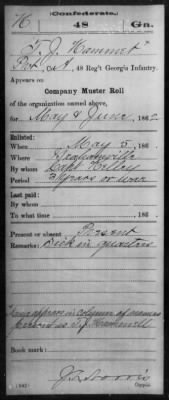 (Confederate.)
H 48 Ga.
T. J. Hammet
Pvt Co. A, 48 Reg't Georgia Infantry.
Appears on
Company Muster Roll
of the organization named above,
for May & June, 1862.
Enlisted:
When May 5, 186
Where
By whom Capt Kelley
Period 3 years or war
Last paid:
By whom
To what time , 186 .
Present or absent Present
Remarks: Sick in quarters
Name appears in column of names
as T. J.
Book mark:
(642)
Copyist.